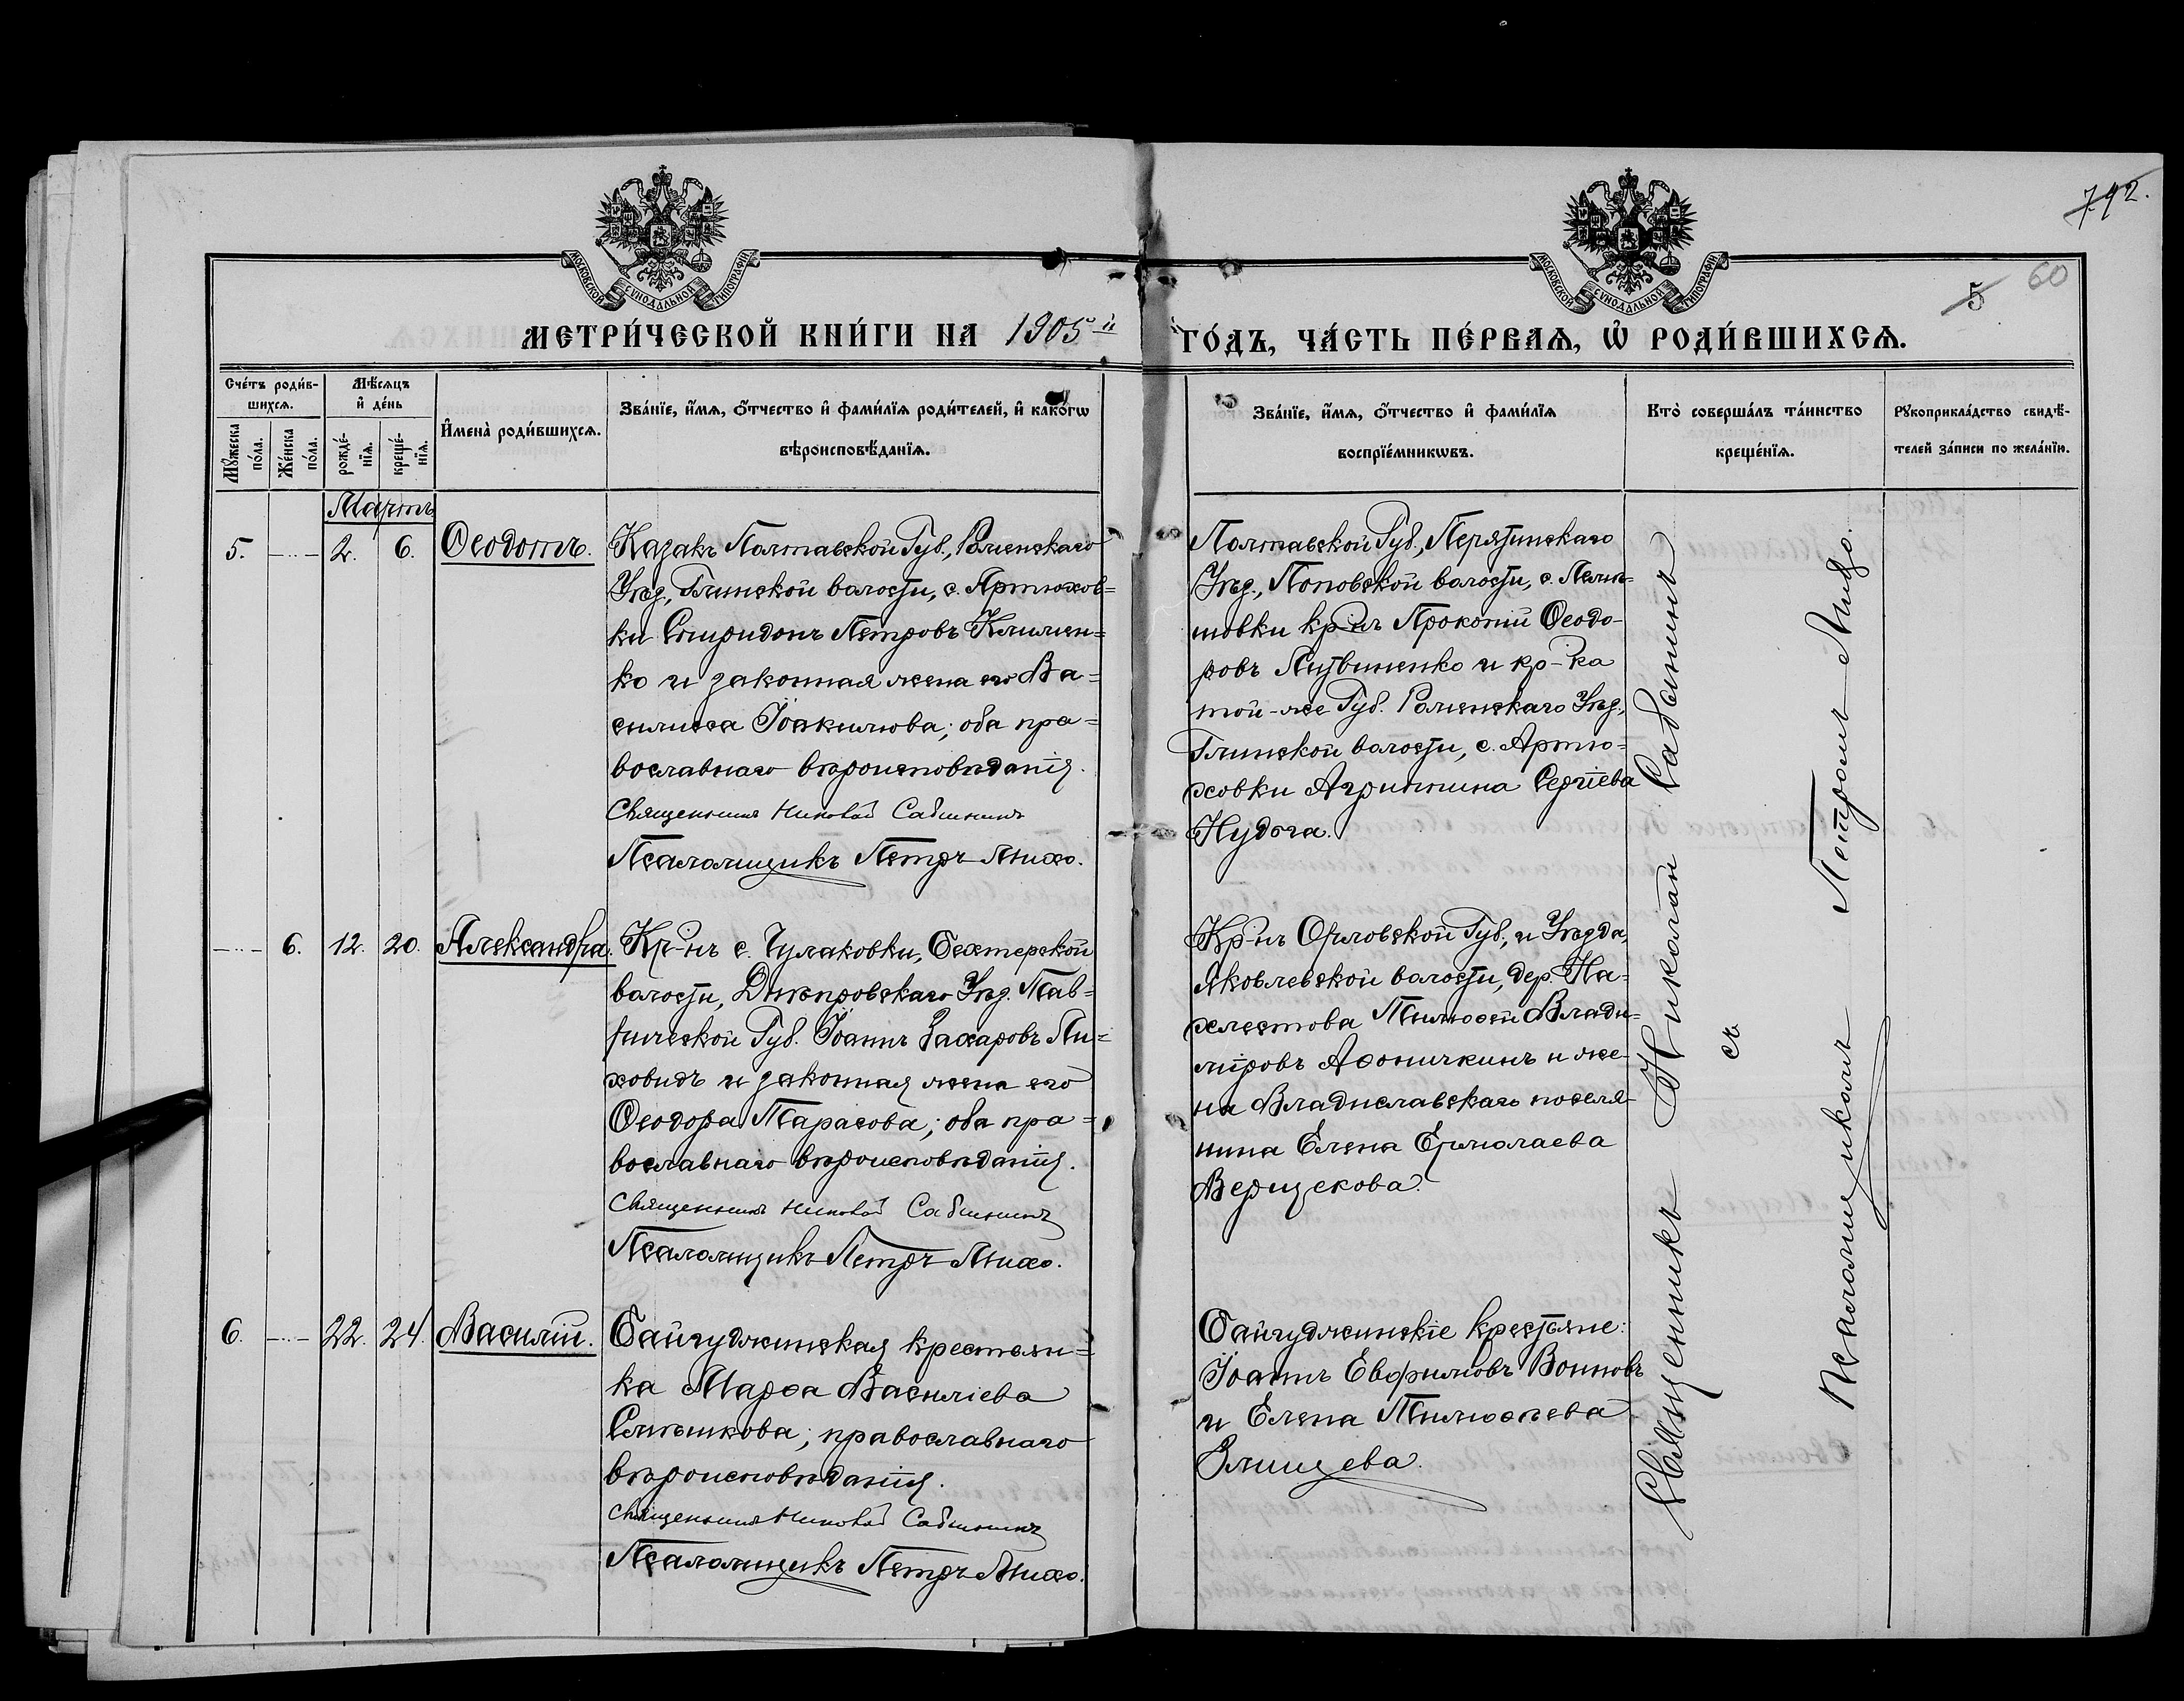 742.
5 60
МОСКОВСКОЙ СѴНОДАЛЬНОЙ ТИПОГРАФІИ
МОСКОВСКОЙ СѴНОДАЛЬНОЙ ТИПОГРАФІИ
МЕТРИ́ЧЕСКОЙ КНИ́ГИ НА 1905й ГО́ДЪ, ЧА́СТЬ ПЕ́РВАѦ, Ѡ҆ РОДИ́ВШИХСѦ.
Сче́тъ роди́в-
шихсѧ.
Мꙋ́жеска по́ла.
Же́нска по́ла.
Мѣ́сѧцъ
и҆ де́нь
рожде́-
нїѧ.
креще́-
нїѧ.
И҆мена̀ роди́вшихсѧ.
Зва́нїе, и҆́мѧ, ѻ҆́тчество и҆ фами́лїѧ роди́телей, и҆ како́гѡ
вѣроисповѣ́данїѧ.
Зва́нїе, и҆́мѧ, ѻ҆́тчество и҆ фами́лїѧ
воспрїе́мникѡвъ.
Кто̀ соверша́лъ та́инство
креще́нїѧ.
Рꙋкоприкла́дство свидѣ́-
телей за́писи по жела́нїю.
Мартъ
5. 2. 6. Ѳеодотъ.
Казакъ Полтавской Губ., Роменскаго
Уѣзд., Глинской волости, с. Артюхов=
ки Спиридонъ Петровъ Климен=
ко и законная жена его Ва=
силисса Іоакимова; оба пра=
вославнаго вѣроисповѣданія.
Священникъ Николай Сабининъ
Псаломщикъ Петръ Лихо.
Полтавской Губ., Пирятинскаго
Уѣзд., Поповской волости,
кр-нъ Прокопій Ѳеодо-
ровъ Литвиненко и кр-ка
той-же Губ. Роменскаго Уѣзд.,
Глинской волости, с. Артю=
ховки Агриппина Сергіева
Нудога.
6. 12. 20. Александра.
Кр-нъ с. Чулаковки, Бехтерской
волости, Днѣпровскаго Уѣзд. Тав=
рической Губ. Іоаннъ Захаровъ Ли=
ховидъ и законная жена его
Ѳеодора Тарасова; оба пра=
вославнаго вѣроисповѣданія.
Священникъ Николай Сабининъ
Псаломщикъ Петръ Лихо.
Кр-нъ Орловской Губ., и Уѣзда,
Яковлевской волости, дер. На=
хлестова Тимоѳей Влади=
міровъ Аѳоничкинъ и же-
на Владиславскаго поселя-
нина Елена Ермолаева
Верещекова.
6. 22. 24. Василій.
Байгуджинская крестьян=
ка Марѳа Василіева
Слѣпикова; православнаго
вѣроисповѣданія.
Священникъ Николай Сабининъ
Псаломщикъ Петръ Лихо.
Байгуджинскіе крестьяне:
Іоаннъ Евфимовъ Воиновъ
и Елена Тимоѳеева
Злищева.
Священникъ Николай Сабининъ
съ
Псаломщикомъ Петромъ Лихо.